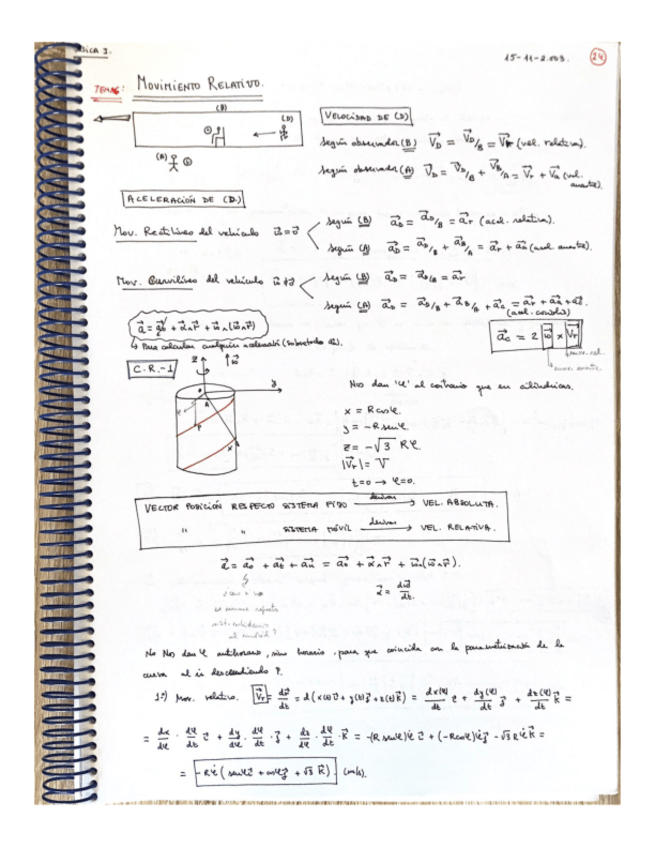 15-11-2.003. 24
TEMA 6: MOVIMIENTO RELATIVO.
(B)
(D)
(A)
VELOCIDAD DE (D)
Según observador (B) V⃗_D = V⃗_D/B = V⃗r (vel. relativa).
Según observador (A) V⃗_D = V⃗_D/B + V⃗_B/A = V⃗r + V⃗a (vel.
ACELERACIÓN DE (D.)
Mov. Rectilíneo del vehículo ω⃗=0⃗
Según (B) a⃗_D = a⃗_D/B = a⃗r (acel. relativa).
Según (A) a⃗_D = a⃗_D/B + a⃗_B/A = a⃗r + a⃗a
Mov. Curvilíneo del vehículo ω⃗≠0⃗
Según (B) a⃗_D = a⃗_D/B = a⃗r.
Según (A) a⃗_D = a⃗_D/B + a⃗_B/A + a⃗c = a⃗r + a⃗a + a⃗c.
(acel. coriolis)
a⃗ = a⃗o + α⃗∧r⃗ + ω⃗∧(ω⃗∧r⃗)
↳ Para calcular cualquier aceleración
a⃗c = 2 ω⃗ × V⃗r
C.R.-1
z ω⃗
y
A
P
x
Nos dan 'φ' al contrario que en cilíndricas.
x = R cosφ.
y = -R senφ.
z = -√3 Rφ.
|V⃗r| = V
t=0 → φ=0.
VECTOR POSICIÓN RESPECTO SISTEMA FIJO derivar → VEL. ABSOLUTA.
" " SISTEMA MÓVIL derivar → VEL. RELATIVA.
a⃗ = a⃗o + a⃗t + a⃗n = a⃗o + α⃗∧r⃗ + ω⃗∧(ω⃗∧r⃗).
α⃗ = dω⃗/dt.
No Nos dan φ antihorario, sino horario, para que coincida con la parametrización de la
curva al ir descendiendo P.
1º) Mov. relativo. V⃗r = dr⃗/dt = d(x(φ)i⃗ + y(φ)j⃗ + z(φ)k⃗) = dx(φ)/dt i⃗ + dy(φ)/dt j⃗ + dz(φ)/dt k⃗ =
= dx/dφ · dφ/dt i⃗ + dy/dφ · dφ/dt · j⃗ + dz/dφ · dφ/dt · k⃗ = -(R senφ)φ̇ i⃗ + (-R cosφ)φ̇ j⃗ - √3 R φ̇ k⃗ =
= -Rφ̇ (senφ i⃗ + cosφ j⃗ + √3 k⃗). (m/s).